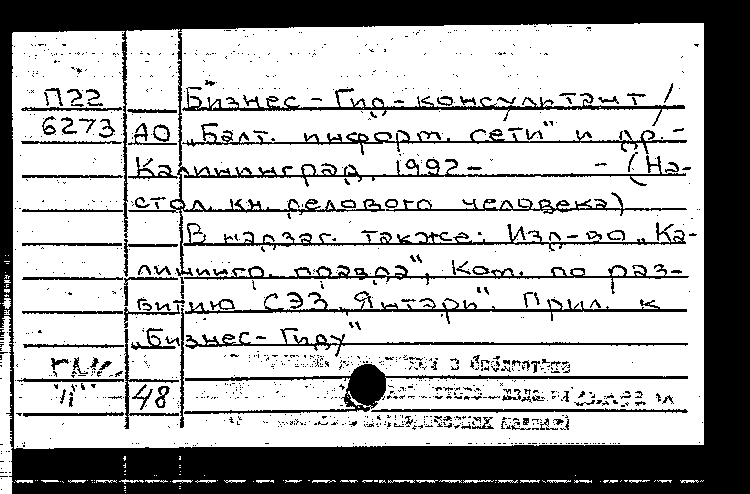 П22 Бизнес-Гид-консультант /
6273 АО „Балт. информ. сети" и др.-
Калининград, 1992- - (На-
стол. кн. делового человека)
В надзаг. также: Изд-во „Ка-
лингр. правда", Ком. по раз-
витию СЭЗ „Янтарь". Прил. к
„Бизнес-Гиду"
в библиотеке
48 этого